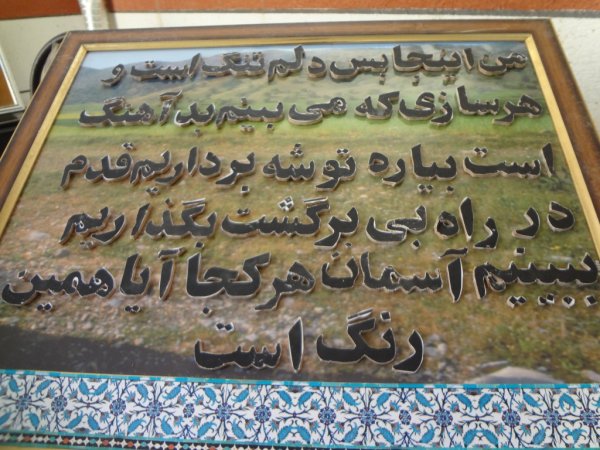 من اینجا بس دلم تنگ است و
هرسازی که می بینم بد آهنگ
است بیاره توشه برداریم قدم
در راه بی برگشت بگذاریم
ببینیم آسمان هرکجا آیا همین
رنگ است